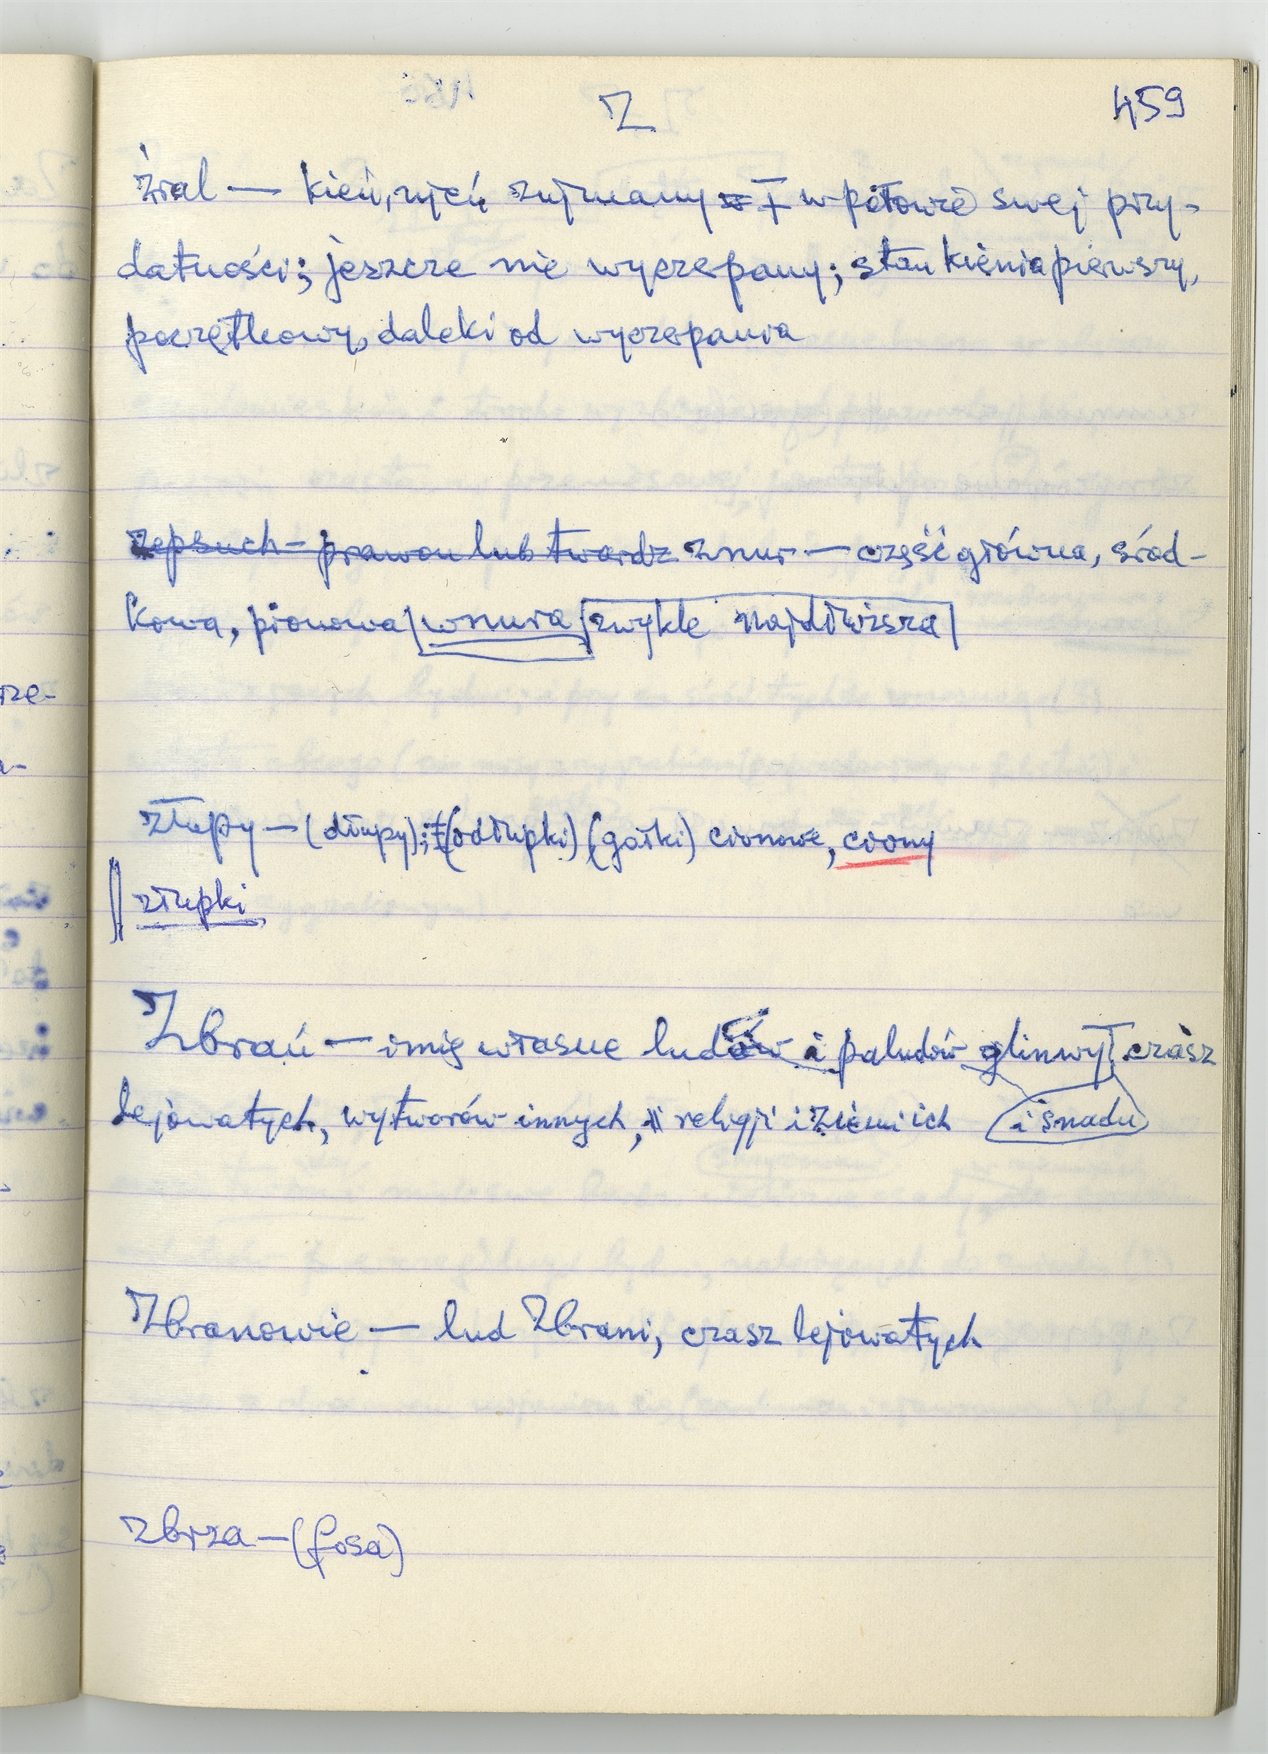 Z 459
żral — kień, rzień zużywany w połowie swej przy-
datności; jeszcze nie wyczerpany; stan kienia pierwszy,
początkowy, daleki od wyczerpania
zepsuch — prawon lub twardz znur — część główna, środ-
kowa, pionowa wnura zwykle najdłuższa
złupy — (dłupy); (odłupki) (gałki) cionowe, ciony
złupki
Zbrań — imię własne ludów i paludów glinwył czasz
lejowatych, wytworów innych, religji i ziemi ich i snadu
Zbranowie — lud Zbrani, czasz lejowatych
zbrza — (fosa)